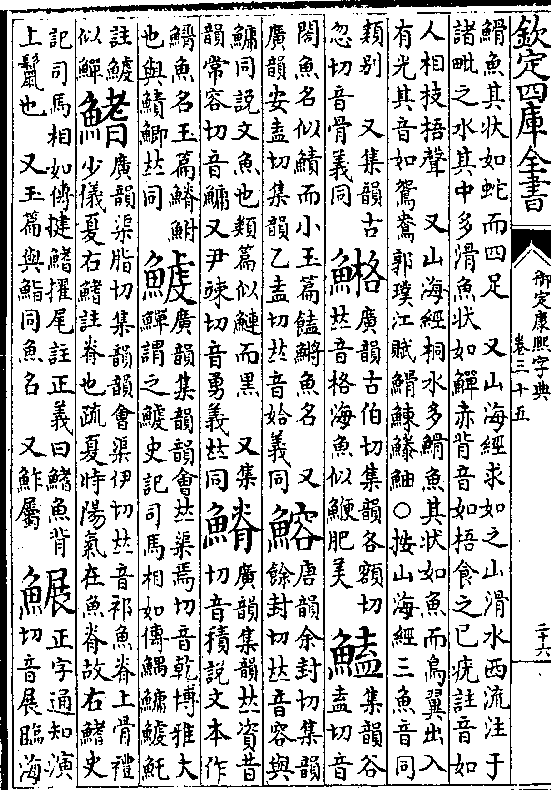 欽定四庫全書
御定康熙字典
卷三十五
二十六
䱻魚其状如蛇而四足　又山海經求如之山滑水西流注于
諸毗之水其中多滑魚状如鱓赤背音如梧食之已疣註音如
人相枝梧聲　又山海經桐水多䱻魚其状如魚而鳥翼出入
有光其音如鴛鴦郭璞江賦䱻鰊鰧鮋○按山海經三魚音同
類别　又集韻古
忽切音骨義同
廣韻古伯切集韻各額切
𠀤音格海魚似鯾肥美
鰪
集韻谷
盍切音
閤魚名似鰿而小玉篇鰪鱂魚名　又
廣韻安盍切集韻乙盍切𠀤音姶義同
鰫
唐韻余封切集韻
餘封切𠀤音容與
鱅同說文魚也類篇似鰱而黑　又集
韻常容切音鱅又尹竦切音勇義𠀤同
廣韻集韻𠀤資昔
切音積說文本作
魚名玉篇鮒
也與鰿鯽𠀤同
鰬
廣韻集韻韻會𠀤渠焉切音乾博雅大
鱓謂之鰬史記司馬相如傳鰅鱅鰬魠
註鰬
似鱓
鰭
廣韻渠脂切集韻韻會渠伊切𠀤音祁魚脊上骨禮
少儀夏右鰭註脊也疏夏時陽氣在魚脊故右鰭史
記司馬相如傳揵鰭擢尾註正義曰鰭魚背
上鬣也　又玉篇與鮨同魚名　又鮓屬
正字通知演
切音展臨海